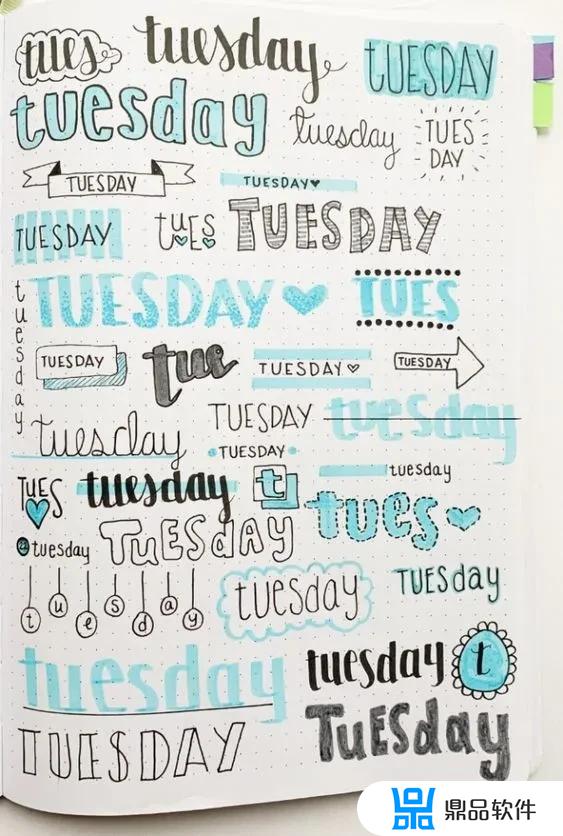 tues tuesday TUESDAY
tuesday tuesday TUES
DAY
TUESDAY TUESDAY
TUESDAY tUES TUESDAY
tuesday
TUESDAY TUES
TUESDAY tue TUESDAY TUESDAY
tuesday TUESDAY tuesday
TUESDAY
TUES tuesday t tuesday
tues
@tuesday TUESdAY
tuesday tuesday TUESday
tuesday tuesday t
TUESDAY TuESday
鼎品软件